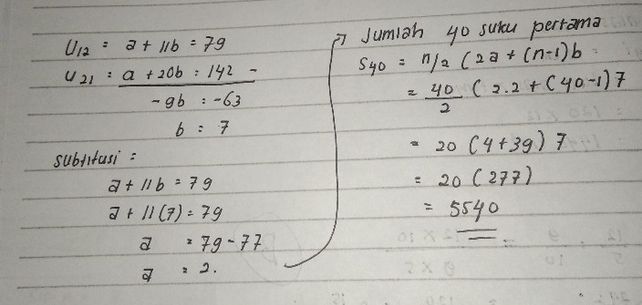 U12 = a + 11b = 79
U21 : a + 20b : 142 -
-9b : -63
b : 7
substitusi :
a + 11b = 79
a + 11(7) = 79
a = 79 - 77
a = 2.
Jumlah 40 suku pertama
S40 = n/2 (2a + (n-1)b
= 40/2 (2.2 + (40-1)7
= 20 (4+39) 7
= 20 (277)
= 5540